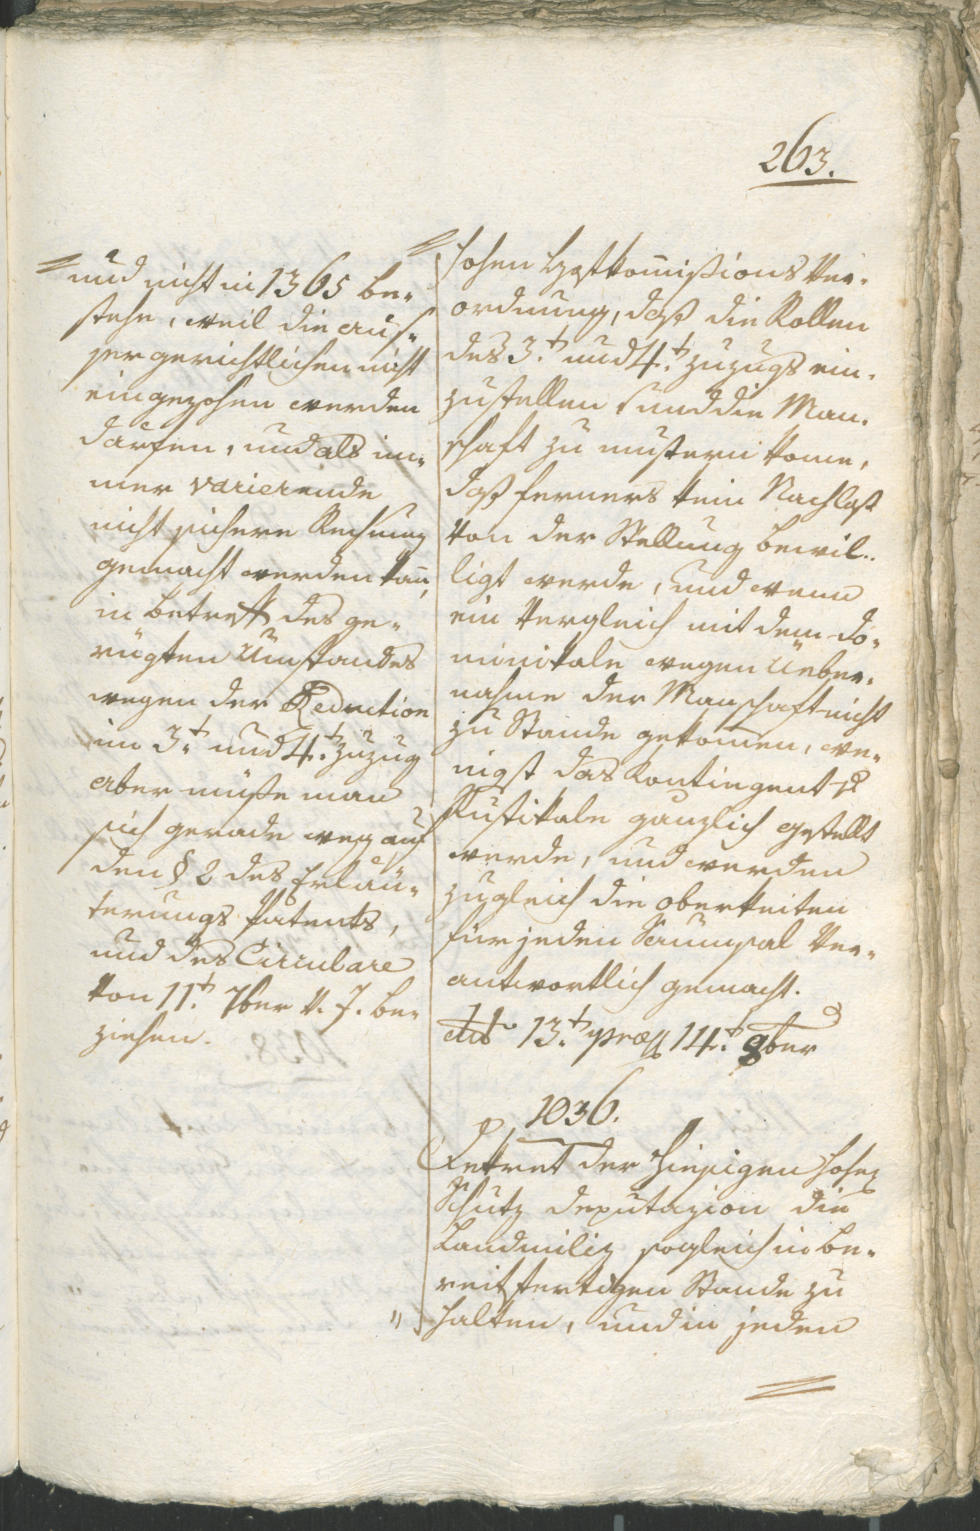 263.
und nicht in 1365 be-
stehe, weil die aus-
sergerichtlichen nicht
eingezohen werden
därfen, und als im-
mer varierende
nicht sichere Rechnung
gemacht werden kañ,
in betreff des ge-
rügten Umstandes
wegen der Reduction
im 3.t und 4.t Zuzug
aber müße man
sich gerade weg auf
den § 2 des Erläu-
terungs Patents,
und des Circulare
von 11.t 7ber v. J. be-
ziehen.
hohen Hofkom̃ißions Ver-
ordnung, daß die Rollen
des 3.t und 4.t Zuzugs ein-
zustellen, und die Man-
schaft zu mustern kome,
daß ferners kein Nachlaß
von der Stellung bewil-
ligt werde, und wenn
ein Vergleich mit dem Do-
minikale wegen Ueber-
nahme der Manschaft nicht
zu Stande gekom̃en, we-
nigst das Kontingent
Rustikale gänzlich gestellt
werde, und werden
zugleich die Oberkeiten
für jeden Saumsal ver-
antwortlich gemacht.
dto 13.t præs 14.t 9ber
1036.
Dekret der hiesigen hohen
Schutz Deputazion die
Landmiliz sogleich in be-
reitfertigen Stande zu
halten, und in jeden